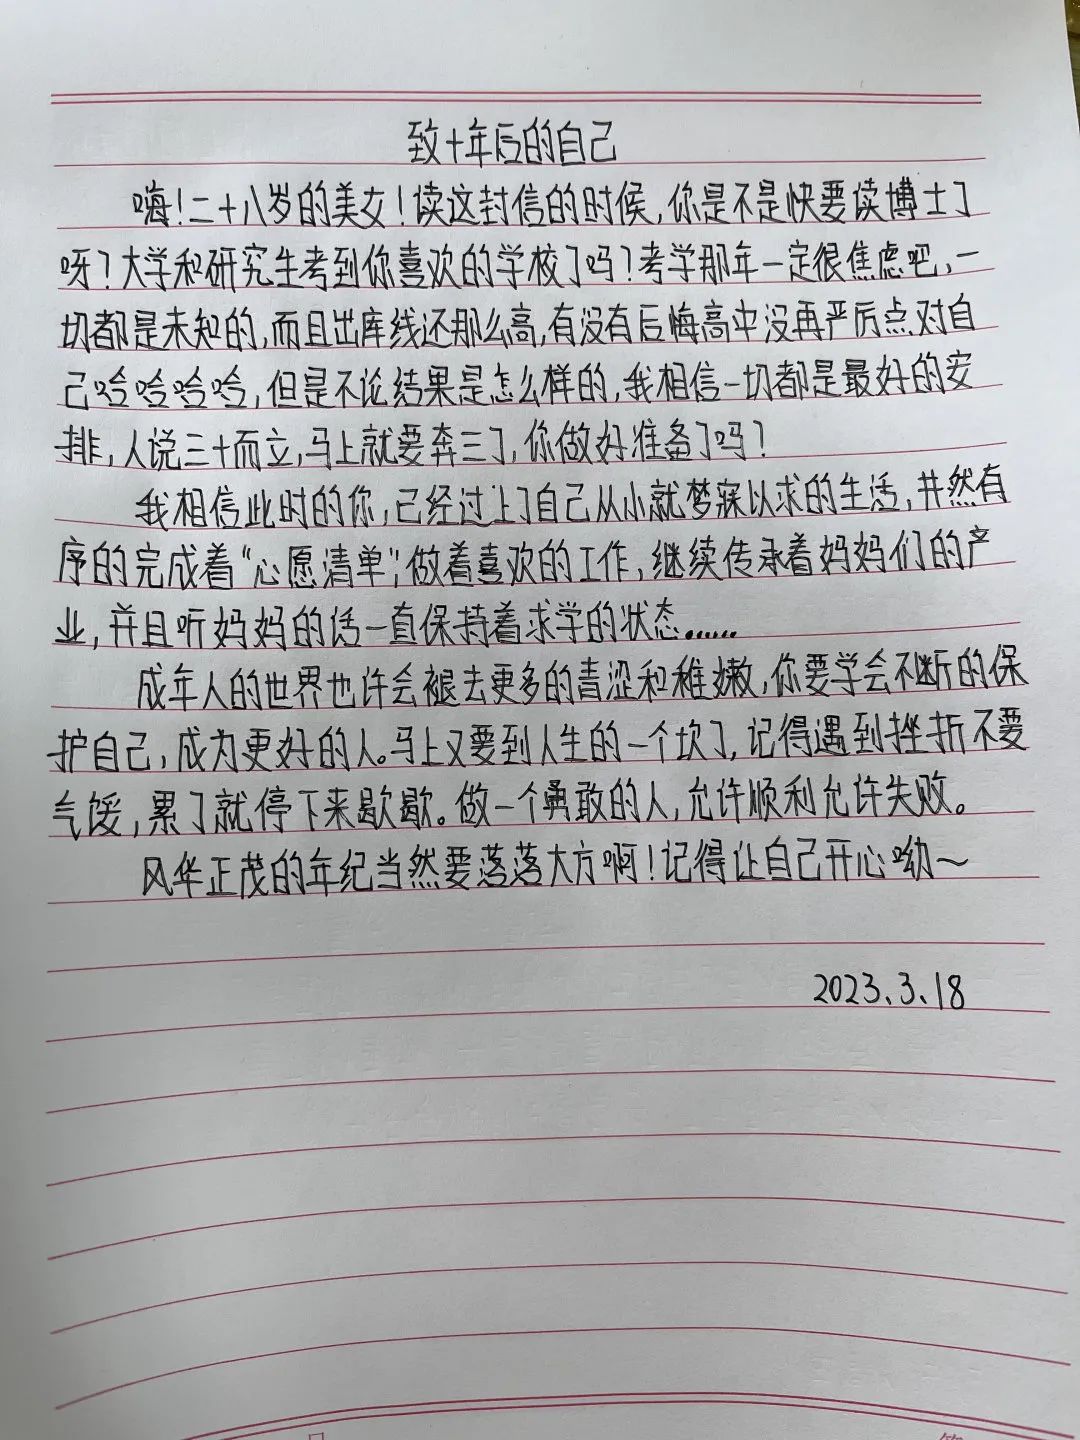 致十年后的自己
嗨!二十八岁的美女!读这封信的时候,你是不是快要读博士了
呀?大学和研究生考到你喜欢的学校了吗?考学那年一定很焦虑吧,一
切都是未知的,而且出库线还那么高,有没有后悔高中没再严厉点对自
己哈哈哈哈,但是不论结果是怎么样的,我相信一切都是最好的安
排,人说三十而立,马上就要奔三了,你做好准备了吗?
我相信此时的你,已经过上了自己从小就梦寐以求的生活,井然有
序的完成着“心愿清单”,做着喜欢的工作,继续传承着妈妈们的产
业,并且听妈妈的话一直保持着求学的状态……
成年人的世界也许会褪去更多的青涩和稚嫩,你要学会不断的保
护自己,成为更好的人。马上又要到人生的一个坎了,记得遇到挫折不要
气馁,累了就停下来歇歇。做一个勇敢的人,允许顺利允许失败。
风华正茂的年纪当然要落落大方啊!记得让自己开心呦~
2023.3.18